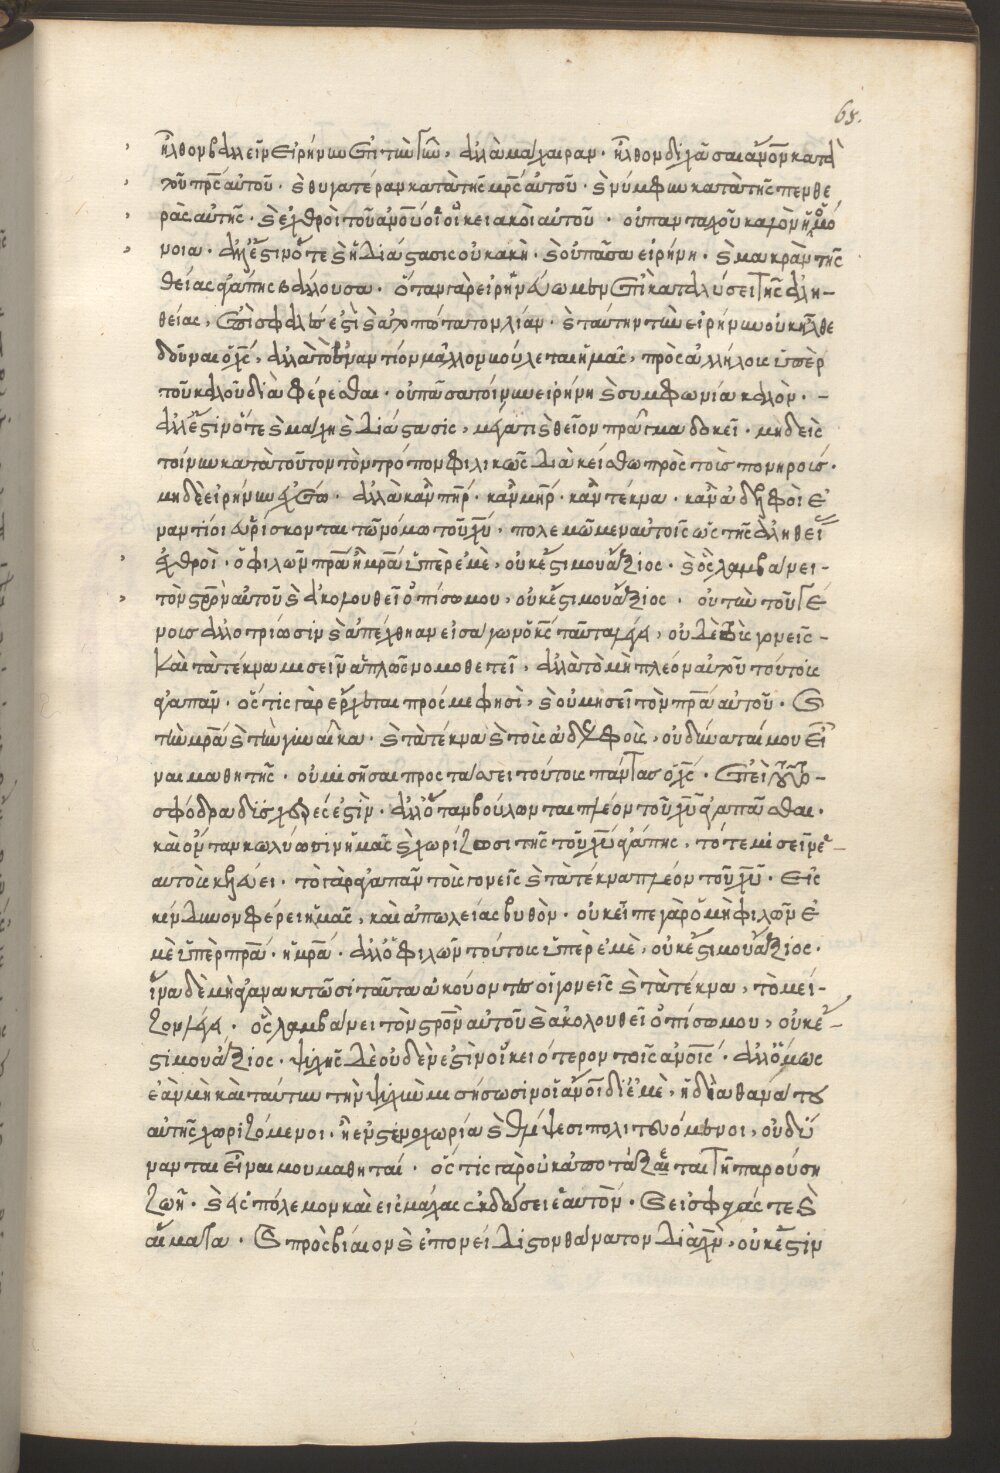 68.
ἦλθον βαλεῖν εἰρήνην ἐπὶ τὴν γῆν, ἀλλὰ μάχαιραν. ἦλθον διχάσαι ἄνον κατὰ
τοῦ πρς αὐτοῦ. καὶ θυγατέραν κατὰ τῆς μρς αὐτοῦ. καὶ νύμφην κατὰ τῆς πενθε
ρᾶς αὐτῆς. καὶ ἐχθροὶ τοῦ ἀνου οἱ οἰκειακοὶ αὐτοῦ. οὐ πανταχοῦ καλὸν ἡ ὁμό
νοια. ἀλλ' ἔστιν ὅτε καὶ ἡ διάστασις οὐ κακὴ. καὶ οὐ πᾶσα εἰρήνη. καὶ μακρὰν τῆς
θείας ἀγάπης βάλλουσα. ὅταν γὰρ εἰρηνεύωμεν ἐπὶ καταλύσει τῆς ἀλη-
θείας, ἐπισφαλές ἐστι καὶ ἀτοπώτατον λίαν. καὶ ταύτην τὴν εἰρήνην οὐκ ἦλθε
δοῦναι ὁ χς, ἀλλὰ τὸ ἐναντίον μᾶλλον βούλεται ἡμᾶς, πρὸς ἀλλήλους ὑπὲρ
τοῦ καλοῦ διαφέρεσθαι. οὐ πᾶσα τοίνυν εἰρήνη καὶ συμφωνία καλὸν. -
ἀλλ' ἔστιν ὅτε καὶ μάχη καὶ διάστασις, μέγα τι καὶ θεῖον πρᾶγμα δοκεῖ. μηδεὶς
τοίνυν κατὰ τοῦτον τὸν τρόπον φιλικῶς διακείσθω πρὸς τοὺς πονηρούς.
μηδὲ εἰρήνην ἐχέτω. ἀλλὰ κἂν πηρ. κἂν μηρ. κἂν τέκνα. κἂν ἀδελφοὶ ἐ
ναντίοι εὑρίσκονται τῶ νόμω τοῦ χυ, πολεμῶμεν αὐτοῖς ὡς τῆς ἀληθεί
ἐχθροὶ. ὁ φιλῶν πρα ἢ μρα ὑπὲρ ἐμὲ, οὐκ ἔστι μου ἄξιος. καὶ ὃς λαμβάνει
τὸν σρον αὐτοῦ καὶ ἀκολουθεῖ ὀπίσω μου, οὐκ ἔστι μου ἄξιος. οὐ τὴν τοῦ γέ
νους ἀλλοτρίωσιν καὶ ἀπέχθειαν εἰσάγων ὁ κς ταῦτα λέγει, οὐδὲ τοὺς γονεῖς -
καὶ τὰ τέκνα μισεῖν ἁπλῶς νομοθετεῖ, ἀλλὰ τὸ μὴ πλέον αὐτοῦ τούτους
ἀγαπᾶν. ὅστις γὰρ ἔρχεται πρός με φησὶ, καὶ οὐ μισεῖ τὸν πρα αὐτοῦ. καὶ
τὴν μρα καὶ τὴν γυναῖκα. καὶ τὰ τέκνα καὶ τοὺς ἀδελφοὺς, οὐ δύναταί μου εἶ
ναι μαθητής. οὐ μισῆσαι προστάσσει τούτους πάντας ὁ χς. ἐπεὶ
σφόδρα δυσχερές ἐστὶν. ἀλλ' ὅταν βούλωνται πλέον τοῦ χυ ἀγαπᾶσθαι.
καὶ ὅταν κωλύωσιν ἡμᾶς καὶ χωρίζωσι τῆς τοῦ χυ ἀγάπης, τότε μισεῖν
αὐτοὺς κελεύει. τὸ γὰρ ἀγαπᾶν τοὺς γονεῖς καὶ τὰ τέκνα πλέον τοῦ χυ. εἰς
κίνδυνον φέρει ἡμᾶς, καὶ ἀπωλείας βυθὸν. οὐκ εἶπε γὰρ ὁ μὴ φιλῶν ἐ
μὲ ὑπὲρ πρα. ἢ μρα. ἀλλ' ὁ φιλῶν τούτους ὑπὲρ ἐμὲ, οὐκ ἔστι μου ἄξιος.
ἵνα δὲ μὴ ἀγανακτῶσι ταῦτα ἀκούοντες οἱ γονεῖς καὶ τὰ τέκνα, τὸ μεί-
ζον λέγει. ὃς λαμβάνει τὸν σρον αὐτοῦ καὶ ἀκολουθεῖ ὀπίσω μου, οὐκ ἔ-
στι μου ἄξιος. ψυχῆς δὲ οὐδὲν ἐστὶν οἰκειότερον τοῖς ἀνοις. ἀλλ' ὅμως
ἐὰν μὴ καὶ ταύτην τὴν ψυχὴν μισήσωσιν οἱ ἄνοι δι' ἐμὲ, ἢ διὰ θανάτου
αὐτῆς χωριζόμενοι. ἢ ἐν στενοχωρία καὶ θλίψεσι πολιτευόμενοι, οὐ δύ
νανται εἶναι μου μαθηταί. ὅστις γὰρ οὐκ ἀποτάξεται τῇ παρούση
ζωῇ. καὶ εἰς πόλεμον καὶ εἰς μάχας ἐκδώσει ἑαυτὸν. καὶ εἰς σφαγάς τε καὶ
αἵματα. καὶ πρὸς βίαιον καὶ ἐπονείδιστον θάνατον διὰ χν, οὐκ ἔστιν